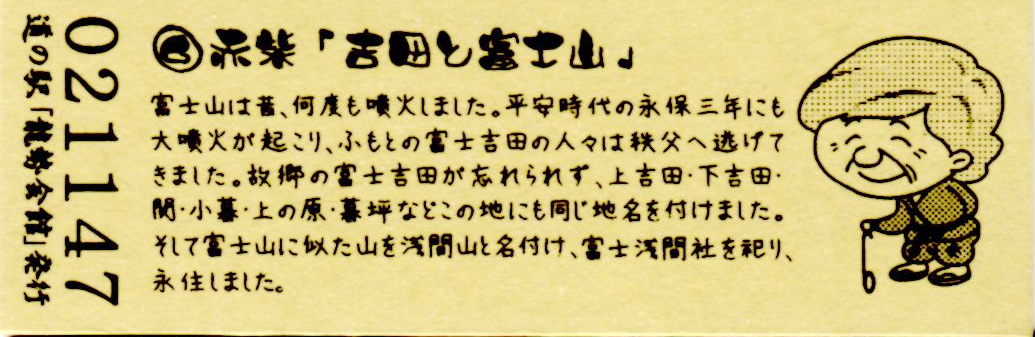 ⑬赤柴「吉田と富士山」
富士山は昔、何度も噴火しました。平安時代の永保三年にも
大噴火が起こり、ふもとの富士吉田の人々は秩父へ逃げて
きました。故郷の富士吉田が忘れられず、上吉田・下吉田・
関・小暮・上の原・暮坪などこの地にも同じ地名を付けました。
そして富士山に似た山を浅間山と名付け、富士浅間社を祀り、
永住しました。
021147
道の駅「龍勢会館」発行